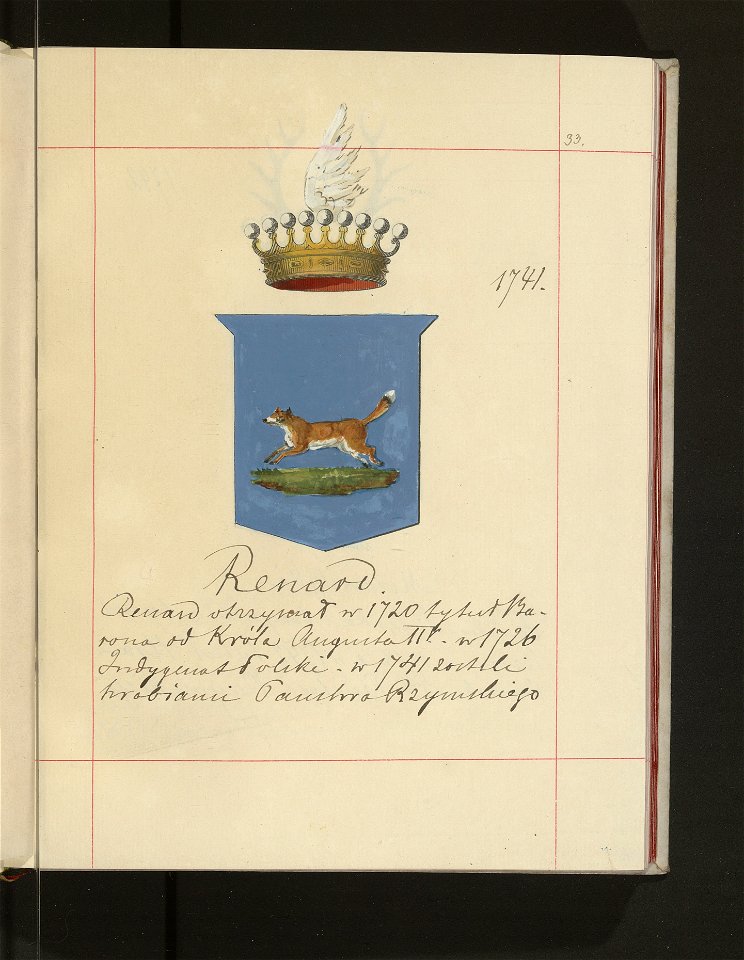 33.
1741.
Renard.
Renard otrzymał w 1720 tytuł Ba-
rona od Króla Augusta IIº. w 1726
Indygenat Polski - w 1741 zostali
hrabiami Państwa Rzymskiego